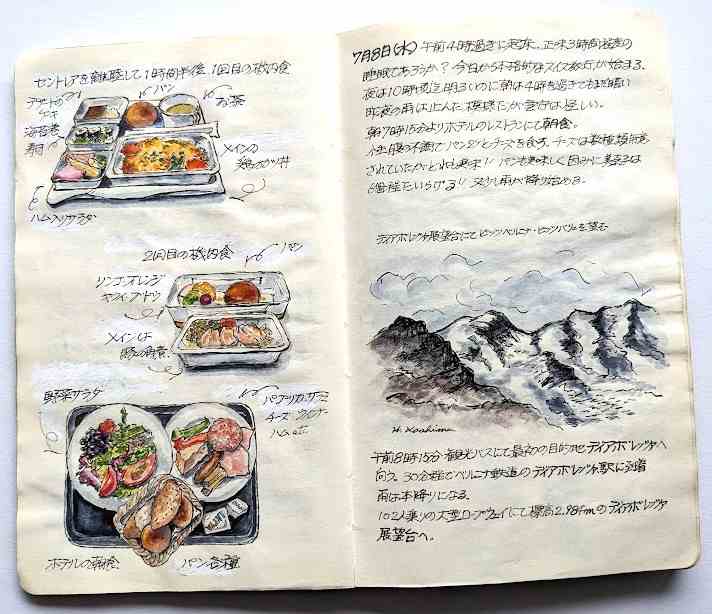 セントレアを離陸して1時間半後、1回目の機内食
デザートの
パン
お茶
海苔巻
寿司
メインの
ハム入りサラダ
2回目の機内食
パン
リンゴ、オレンジ
キウイ、ブドウ
メインは
野菜サラダ
パプリカ、サラミ
チーズ ウインナー
ハム etc.
ホテルの朝食
パン各種
7月8日(水) 午前4時過ぎに起床、正味3時間程度の
睡眠であろうか? 今日から本格的なスイス紀行が始まる。
夜は10時頃迄明るいのに朝は4時を過ぎてもまだ暗い
昨夜の雨は止んだ模様だが雲行は怪しい。
朝7時15分よりホテルのレストランにて朝食。
パン2ケとチーズを食す、チーズは数種類用意
されていたがどれも美味!! パンも美味しく
又少し雨が降り始める。
ディアボレッツァ展望台にてピッツベルニナ・ピッツパリュを望む
H. Koshima
午前8時15分 観光バスにて最初の目的地ディアボレッツァへ
向う。30分程でベルニナ鉄道のディアボレッツァ駅に到着
雨は本降りになる。
102人乗りの大型ロープウェイにて標高2,984mのディアボレッツァ
展望台へ。